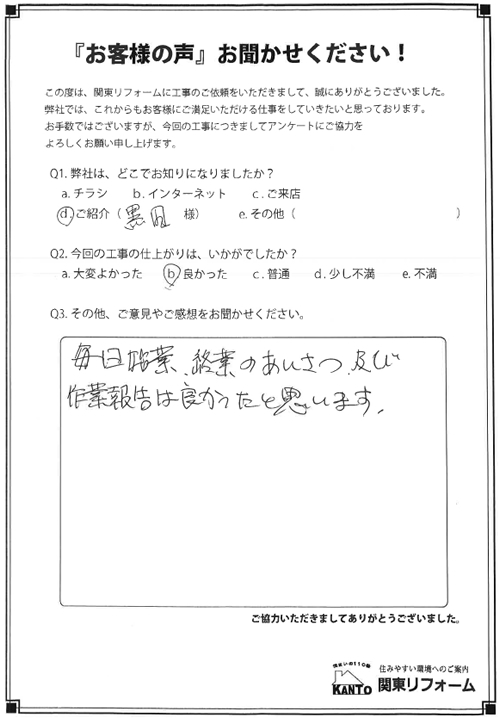 『お客様の声』お聞かせください！
この度は、関東リフォームに工事のご依頼をいただきまして、誠にありがとうございました。
弊社では、これからもお客様にご満足いただける仕事をしていきたいと思っております。
お手数ではございますが、今回の工事につきましてアンケートにご協力を
よろしくお願い申し上げます。
Q1. 弊社は、どこでお知りになりましたか？
a. チラシ　b. インターネット　c. ご来店
d ご紹介（黒 様）　e. その他（　）
Q2. 今回の工事の仕上がりは、いかがでしたか？
a. 大変よかった　b 良かった　c. 普通　d. 少し不満　e. 不満
Q3. その他、ご意見やご感想をお聞かせください。
毎日始業、終業のあいさつ、及び
作業報告は良かったと思います。
ご協力いただきましてありがとうございました。
住まいの110番
KANTO
住みやすい環境へのご案内
関東リフォーム